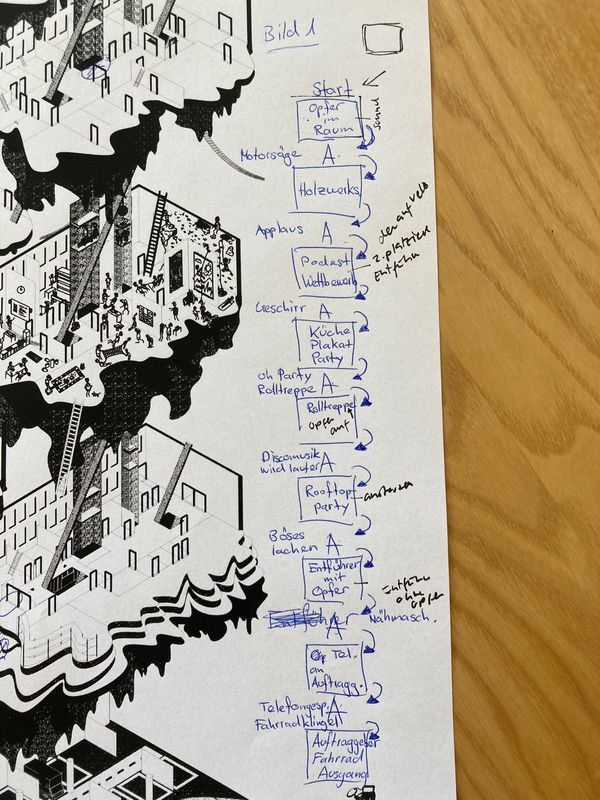 Bild 1
Start
Opfer
im
Raum
Motorsäge A
Holzwerks
Applaus A
Podest
Wettbewerb
2. platzierte
Entführ
Geschirr A
Küche
Plakat
Party
uh Party
Rolltreppe A
Rolltreppe
opfer
auf
Discomusik
wird lauter A
Rooftop
party
Böses
lachen A
Entführer
mit
Opfer
Entführ
ohne
opfer
A Nähmasch.
Tel.
an
Auftragg.
Telefongesp. A
Fahrradklingel
Auftraggeber
Fahrrad
Ausgang